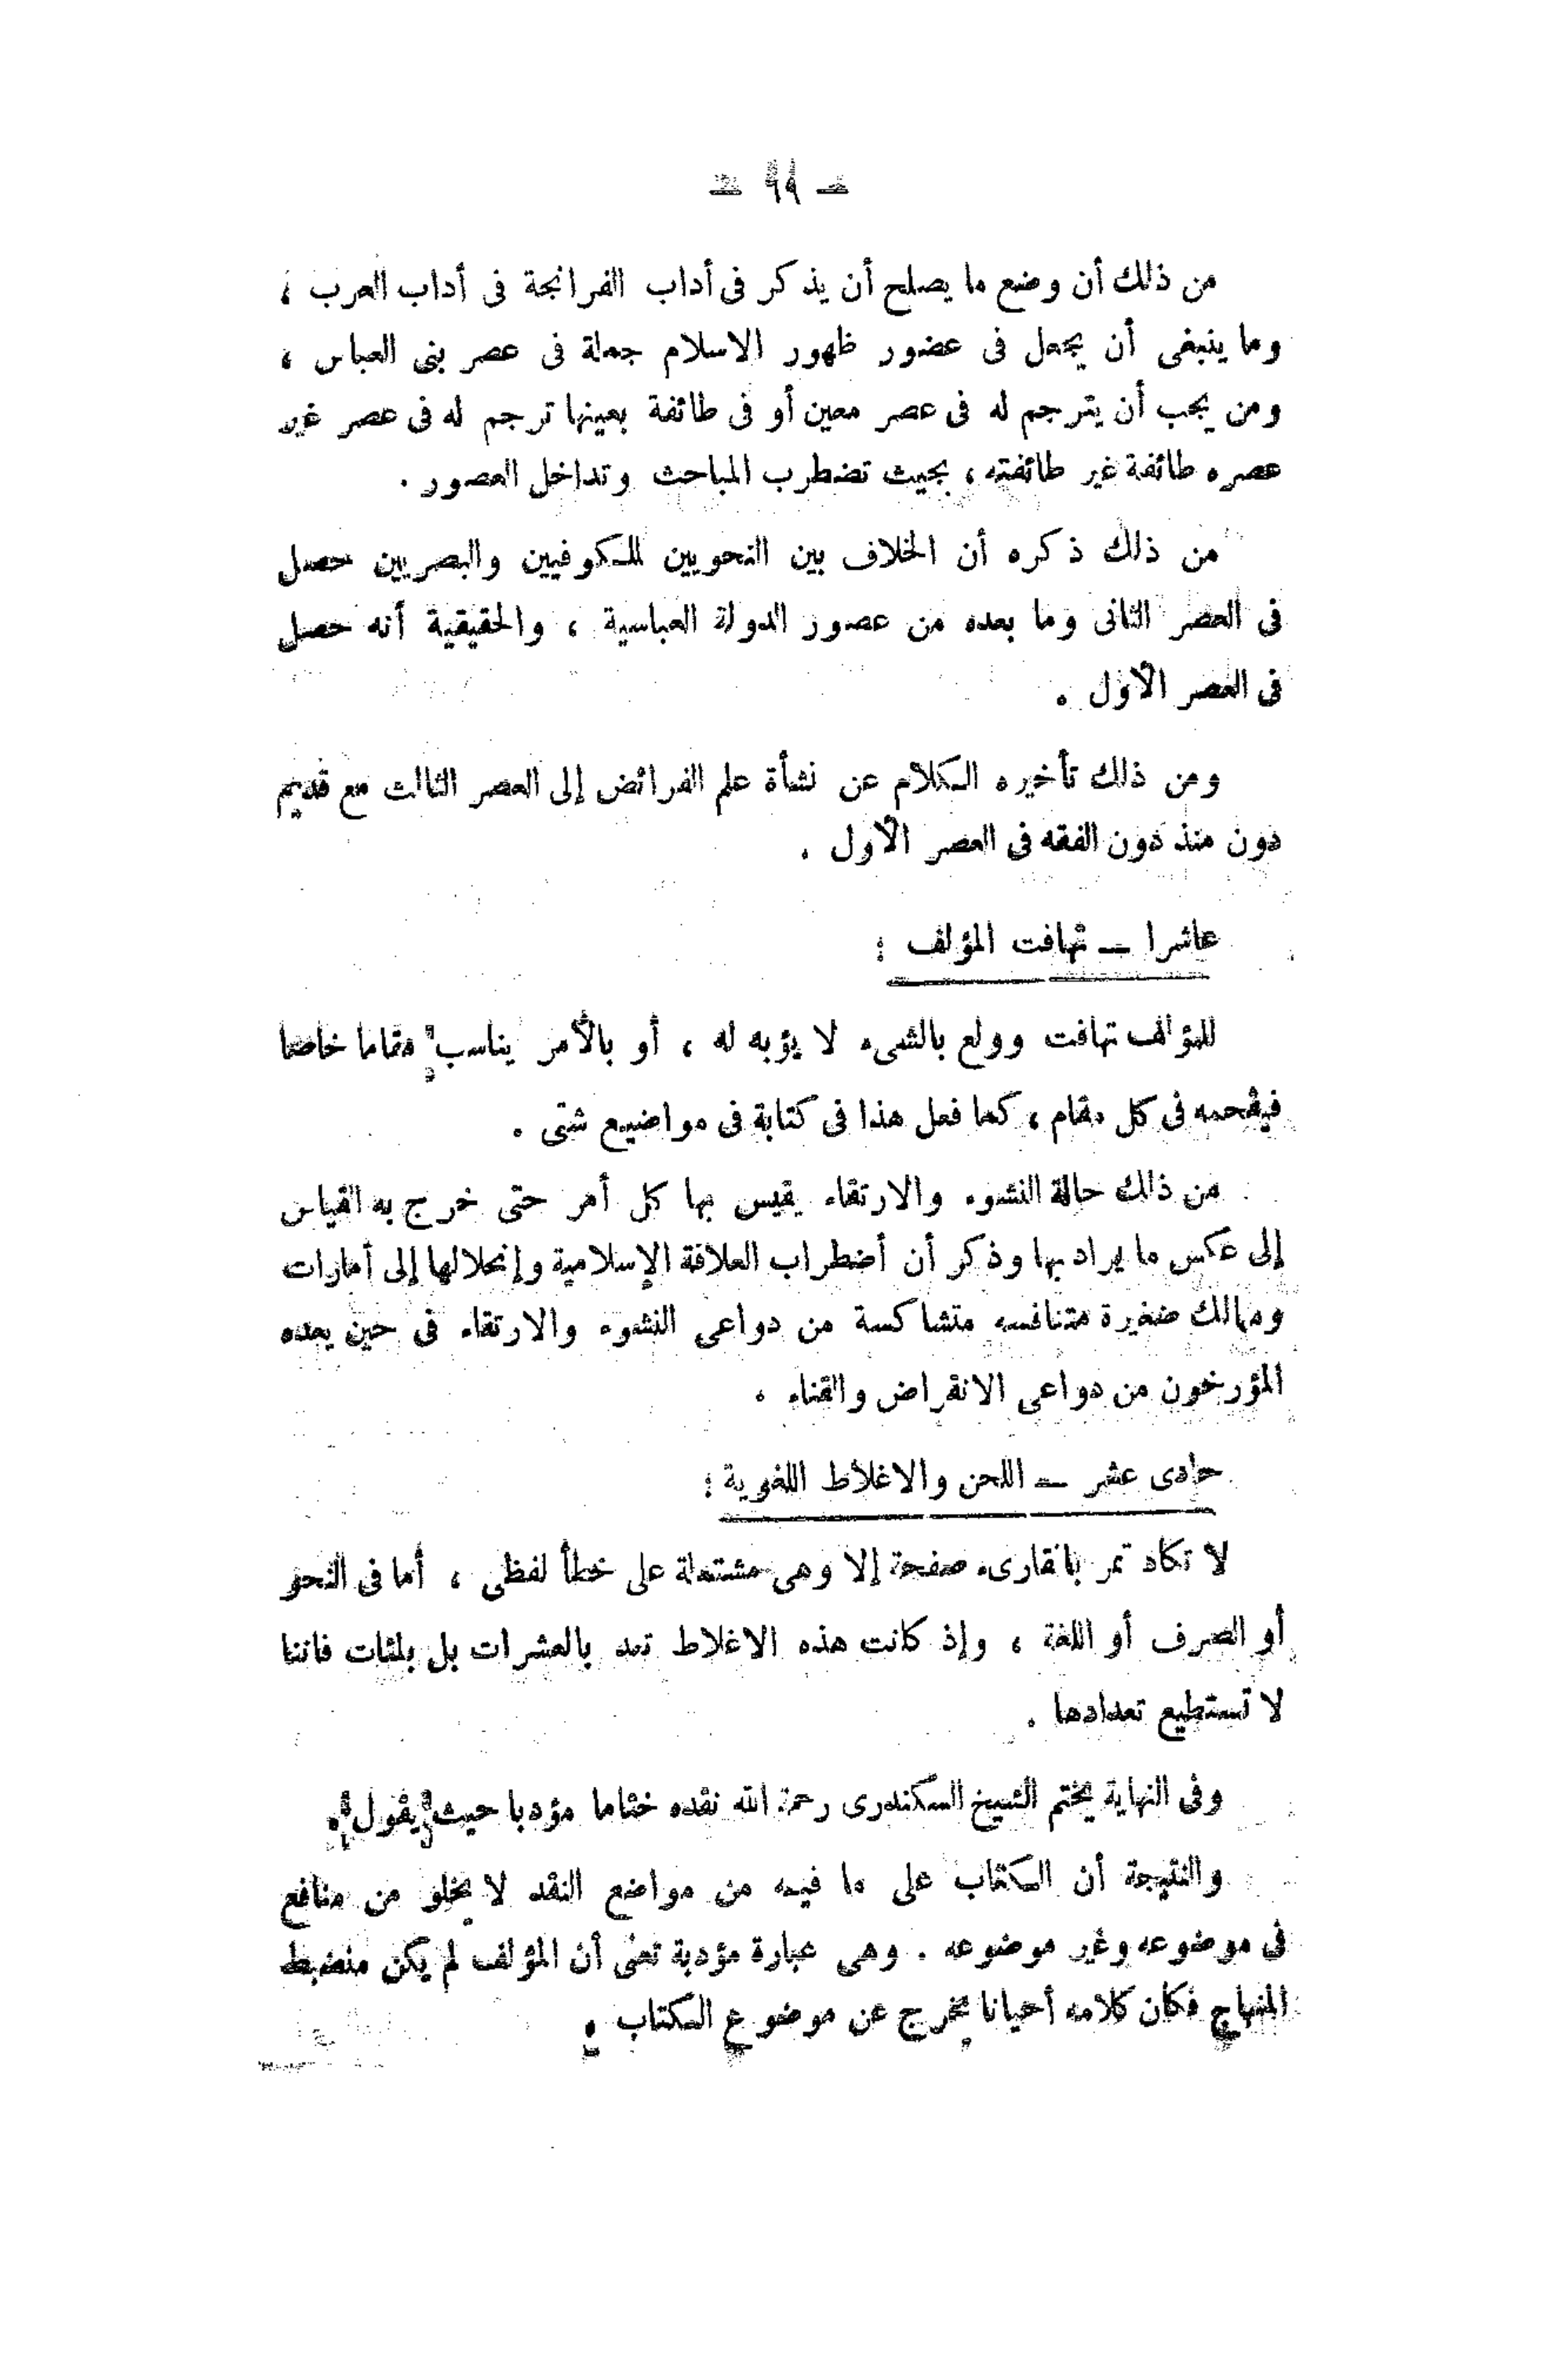 — ٩٩ —
من ذلك أن وضع ما يصلح أن يذكر فى أداب الفرانجة فى أداب العرب ،
وما ينبغى أن يجعل فى عضور ظهور الاسلام جملة فى عصر بنى العباس ،
ومن يجب أن يترجم له فى عصر معين أو فى طائفة بعينها ترجم له فى عصر غير
عصره طائفة غير طائفته ، بحيث تضطرب المباحث وتداخل العصور .
من ذلك ذكره أن الخلاف بين النحويين للكوفيين والبصريين حصل
فى العصر الثانى وما بعده من عصور الدولة العباسية ، والحقيقية أنه حصل
فى العصر الأول .
ومن ذلك تأخيره الكلام عن نشأة علم الفرائض إلى العصر الثالث مع قديم
دون منذ دون الفقه فى العصر الأول .
عاشرا — تهافت المؤلف :
للمؤلف تهافت وولع بالشىء لا يؤبه له ، أو بالأمر يناسب مقاما خاصا
فيقحمه فى كل مقام ، كما فعل هذا فى كتابة فى مواضيع شتى .
من ذلك حالة النشوء والارتقاء يقيس بها كل أمر حتى خرج به القياس
إلى عكس ما يراد بها وذكر أن أضطراب العلافة الإسلامية وإنحلالها إلى أمارات
وممالك ضغيرة متنافسه متشاكسة من دواعى النشوء والارتقاء فى حين يعده
المؤرخون من دواعى الانقراض والقناء .
حادى عشر — اللحن والاغلاط اللغوية :
لا تكاد تمر بالقارىء صفحة إلا وهى مشتملة على خطأ لفظى ، أما فى النحو
أو الصرف أو اللغة ، وإذ كانت هذه الاغلاط تعد بالعشرات بل بلمئات فاننا
لا تستطيع تعدادها .
وفى النهاية يختم الشيخ السكندرى رحمة الله نقده ختاما مؤدبا حيث يقول .
والنتيجة أن الكتاب على ما فيه من مواضع النقد لا يخلو من منافع
فى موضوعه وغير موضوعه . وهى عبارة مؤدبة تعنى أن المؤلف لم يكن منضبط
المنهاج فكان كلامه أحيانا يخرج عن موضوع الكتاب .